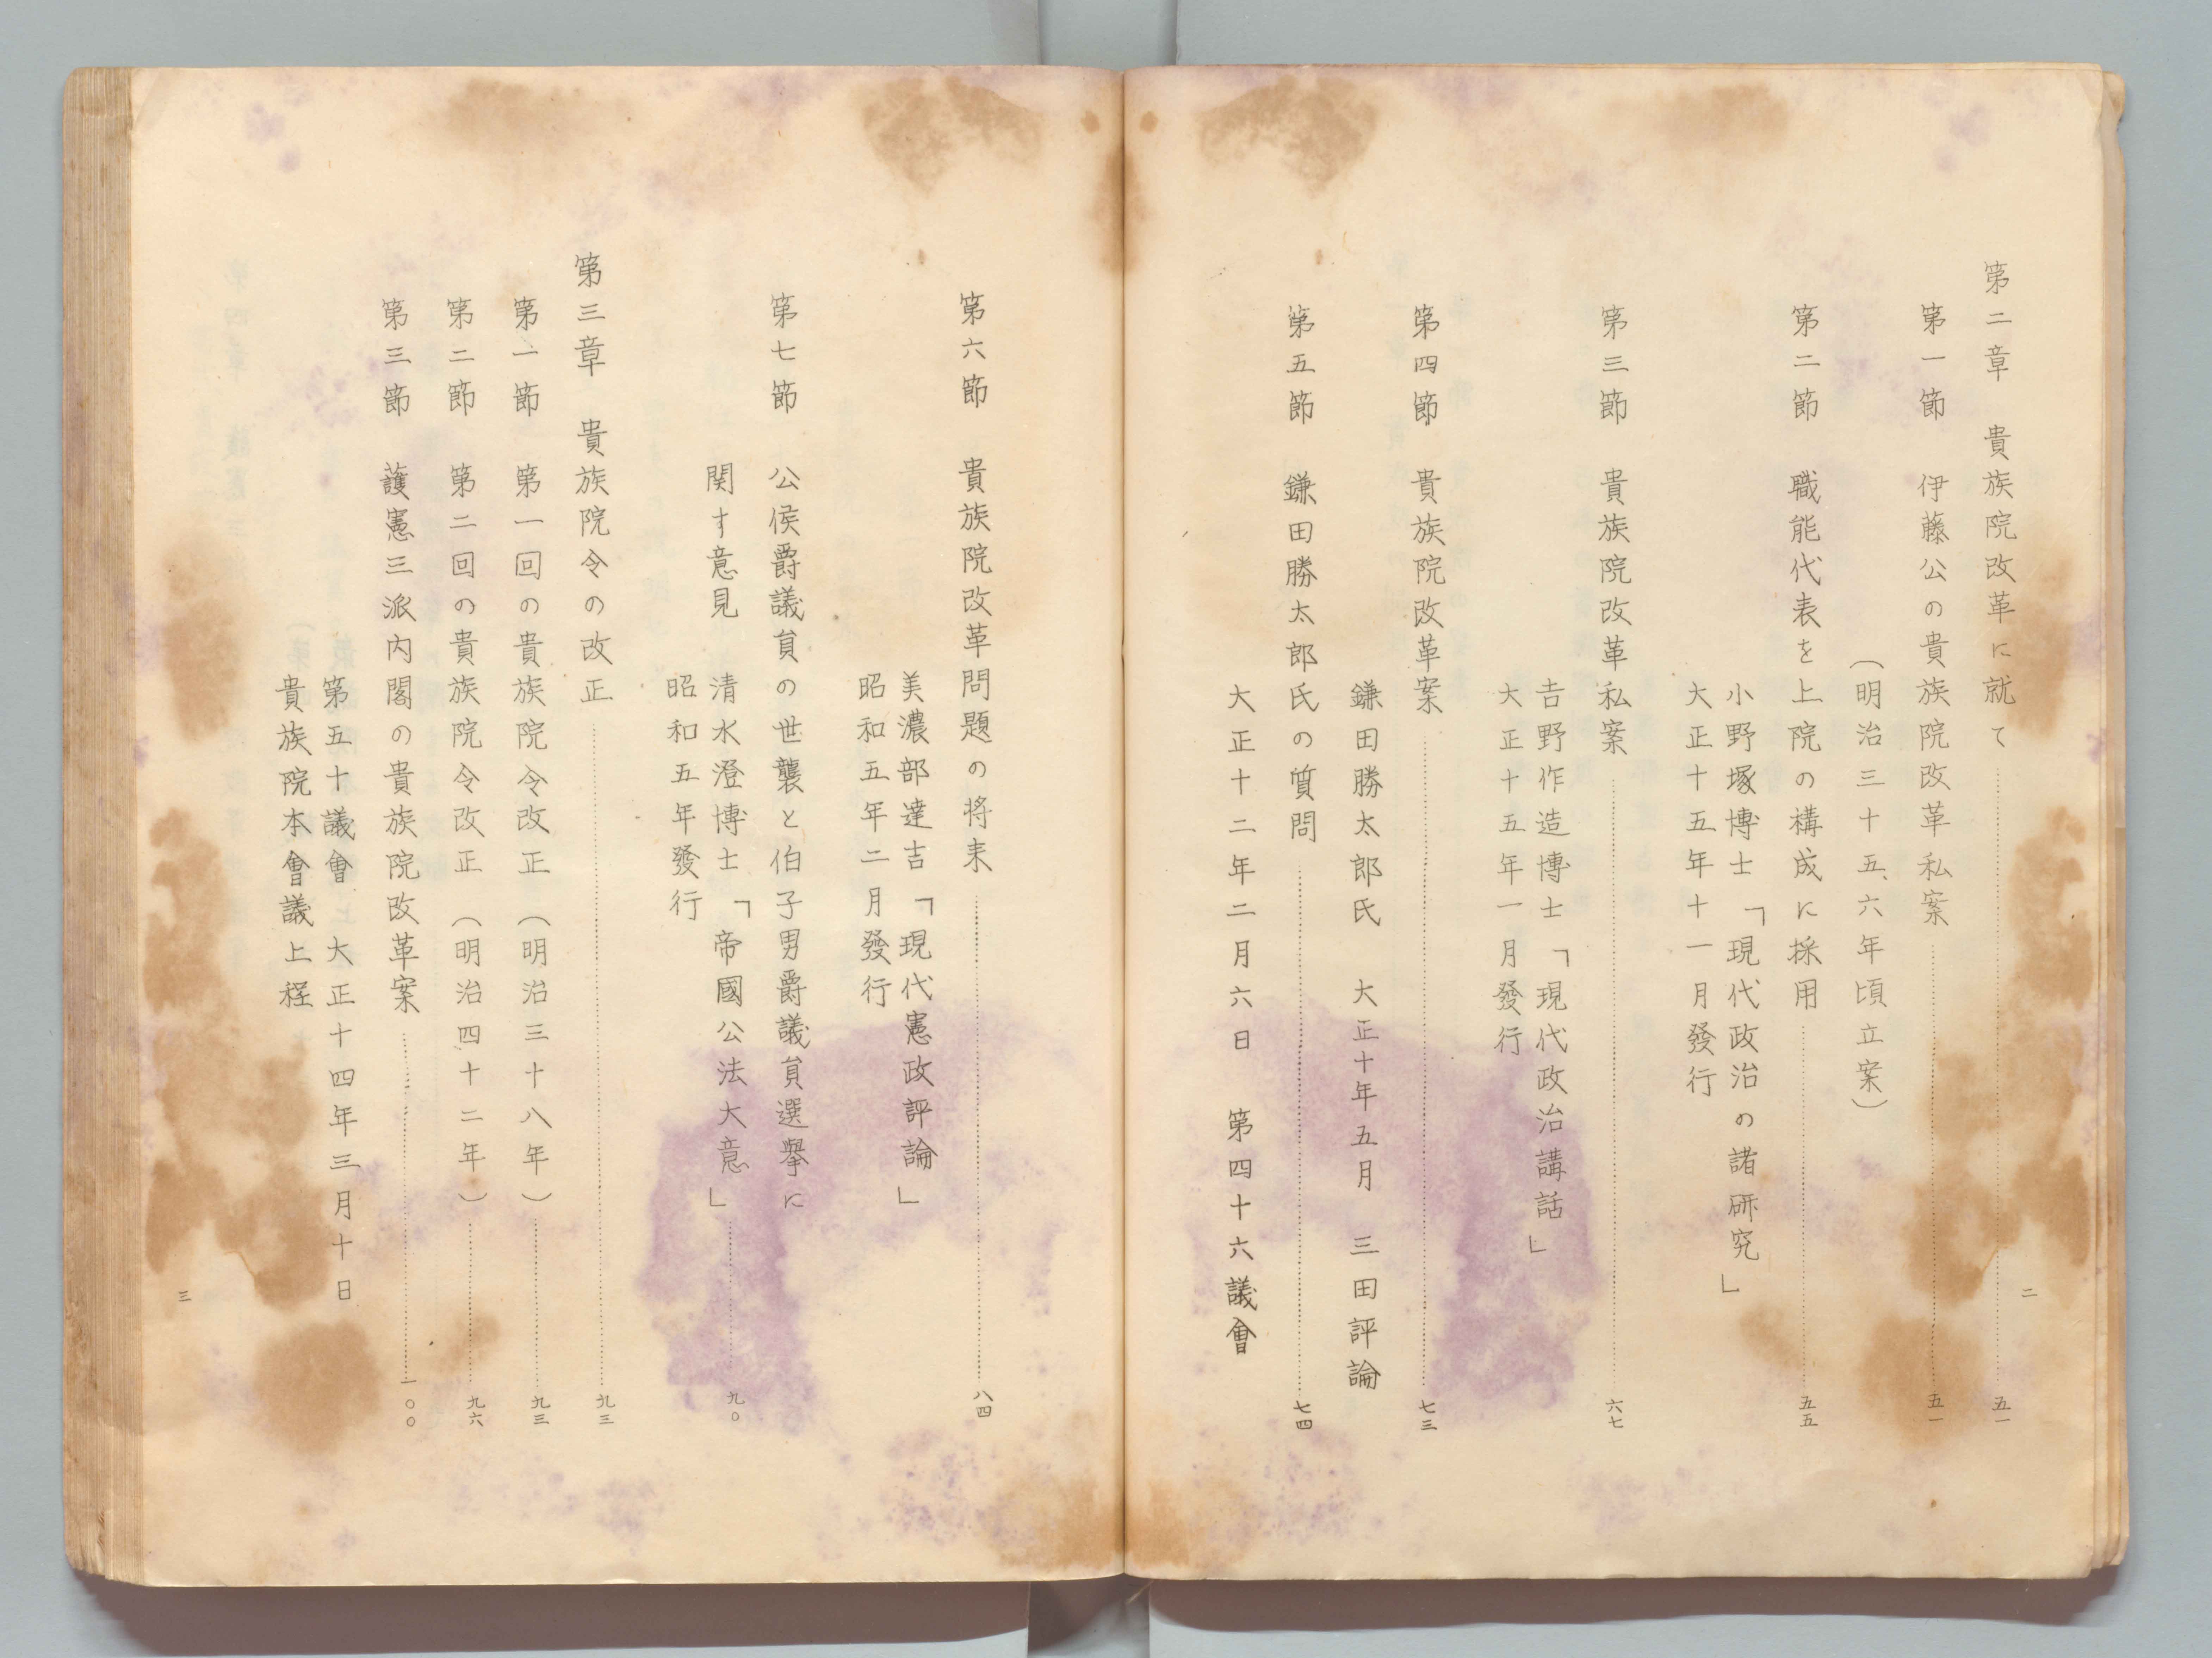 二
第二章　貴族院改革に就て……五一
第一節　伊藤公の貴族院改革私案……五一
（明治三十五、六年頃立案）
第二節　職能代表を上院の構成に採用……五五
小野塚博士「現代政治の諸研究」
大正十五年十一月發行
第三節　貴族院改革私案……六七
吉野作造博士「現代政治講話」
大正十五年一月發行
第四節　貴族院改革案……七三
鎌田勝太郎氏　大正十年五月　三田評論
第五節　鎌田勝太郎氏の質問……七四
大正十二年二月六日　第四十六議會
第六節　貴族院改革問題の将来……八四
美濃部達吉「現代憲政評論」
昭和五年二月發行
第七節　公侯爵議員の世襲と伯子男爵議員選擧に
関す意見
清水澄博士「帝國公法大意」……九〇
昭和五年發行
第三章　貴族院令の改正……九三
第一節　第一回の貴族院令改正（明治三十八年）……九三
第二節　第二回の貴族院令改正（明治四十二年）……九六
第三節　護憲三派内閣の貴族院改革案……一〇〇
第五十議會　大正十四年三月十日
貴族院本會議上程
三